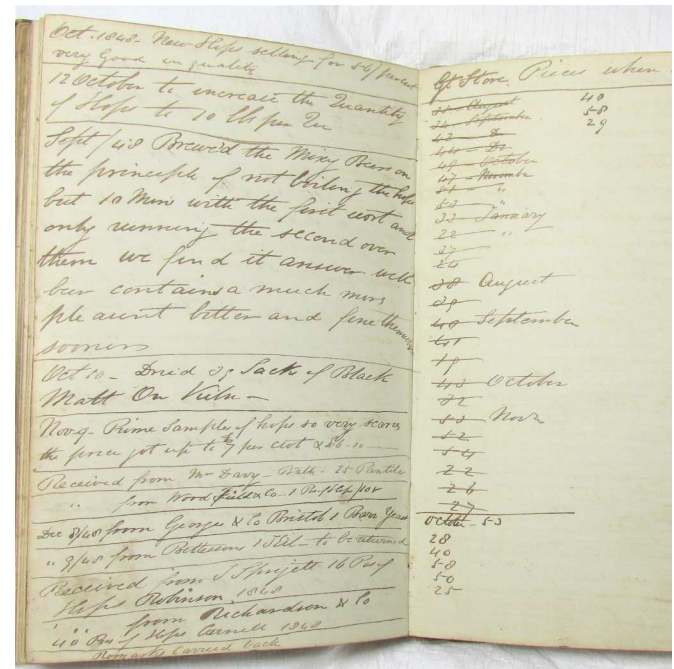 Oct. 1848 - New Hops selling for 56/ per cwt
very Good in quality
12 October to increase the Quantity
of Hops to 10 lbs per Qu
Sept/48 Brewed the Mixg Beers on
the principle of not boiling the hops
but 10 Mins with the first wort and
only running the second over
them we find it answer well
beer contains a much more
pleasient bitter and fine themselves
sooner
Oct 10 - Dried 39 Sack of Black
Malt On Kiln -
Novr 9 - Prime Sample of hops so very scarce
the price got up to £7 per cwt & £6-10
Received from Mr Davy - 25
" from Wood field & Co - 1
Dec 8/48 from George & Co Bristol 1 Barr Yeast
" 9/48 from 1 - to be returned
Received from S Spriett 16 Pos of
Hops Robinson 1848
" " from Richardson & Co
40 Pos of Hops Carnell 1848
Remarks Carried back
Gt Store. Pieces when
August 40
September 58
43 D 29
44 Do
49 October
47 Novembr
51 "
53 "
33 January
22 "
27
24
38 August
39
40 September
41
19
43 October
32
53 Novr
52
54
22
26
27
October 53
28
40
58
50
25